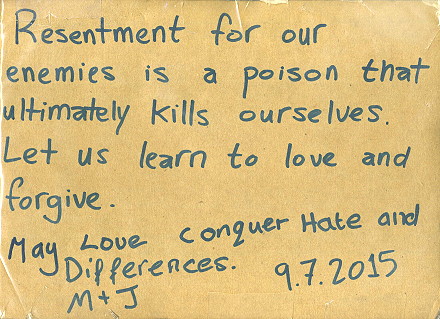 Resentment for our
enemies is a poison that
ultimately kills ourselves.
Let us learn to love and
forgive.
May Love conquer Hate and
Differences.
9.7.2015
M+J